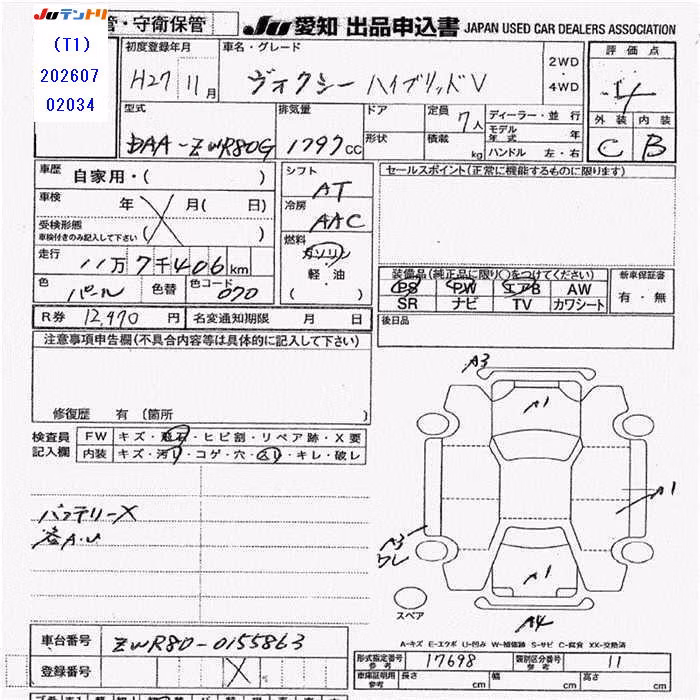 Juテントリ
(T1)
202607
02034
管・守衛保管
Ju 愛知 出品申込書 JAPAN USED CAR DEALERS ASSOCIATION
初度登録年月
H27 11 月
車名・グレード
ヴォクシー ハイブリッドV
2WD
・
4WD
評価点
4
外装 内装
C B
型式
DAA-ZWR80G
排気量
1797 CC
ドア
形状
定員 7人
積載 kg
ディーラー・並行
モデル年式 年
ハンドル 左・右
車歴 自家用・( )
車検 年 月( 日)
受検形態
車検付きのみ記入して下さい ( )
走行
11万7千406km
色 パール 色替 色コード 070
シフト
AT
冷房
AAC
燃料
ガソリン
軽・油
( )
セールスポイント(正常に機能するものに限ります)
装備品(純正品に限り○をつけてください)
PS PW エアB AW
SR ナビ TV カワシート
新車保証書
有・無
R券 12,470 円 名変通知期限 月 日
後日品
注意事項申告欄(不具合内容等は具体的に記入して下さい)
修復歴 有 〔箇所 〕
検査員
記入欄
FW キズ・飛石・ヒビ割・リペア跡・X要
内装 キズ・汚レ・コゲ・穴・スレ・キレ・破レ
バッテリーX
各A.U
A3
A1
A1
A3
ワレ
A1
A4
スペア
A-キズ E-エクボ U-凹み W-補修跡 S-サビ C-腐食 XX-交換済
車台番号 ZWR80-0155863
登録番号 X
形式指定番号 参考 17698 類別区分番号 参考 11
車庫証明用 参考 長さ cm 幅 cm 高さ cm